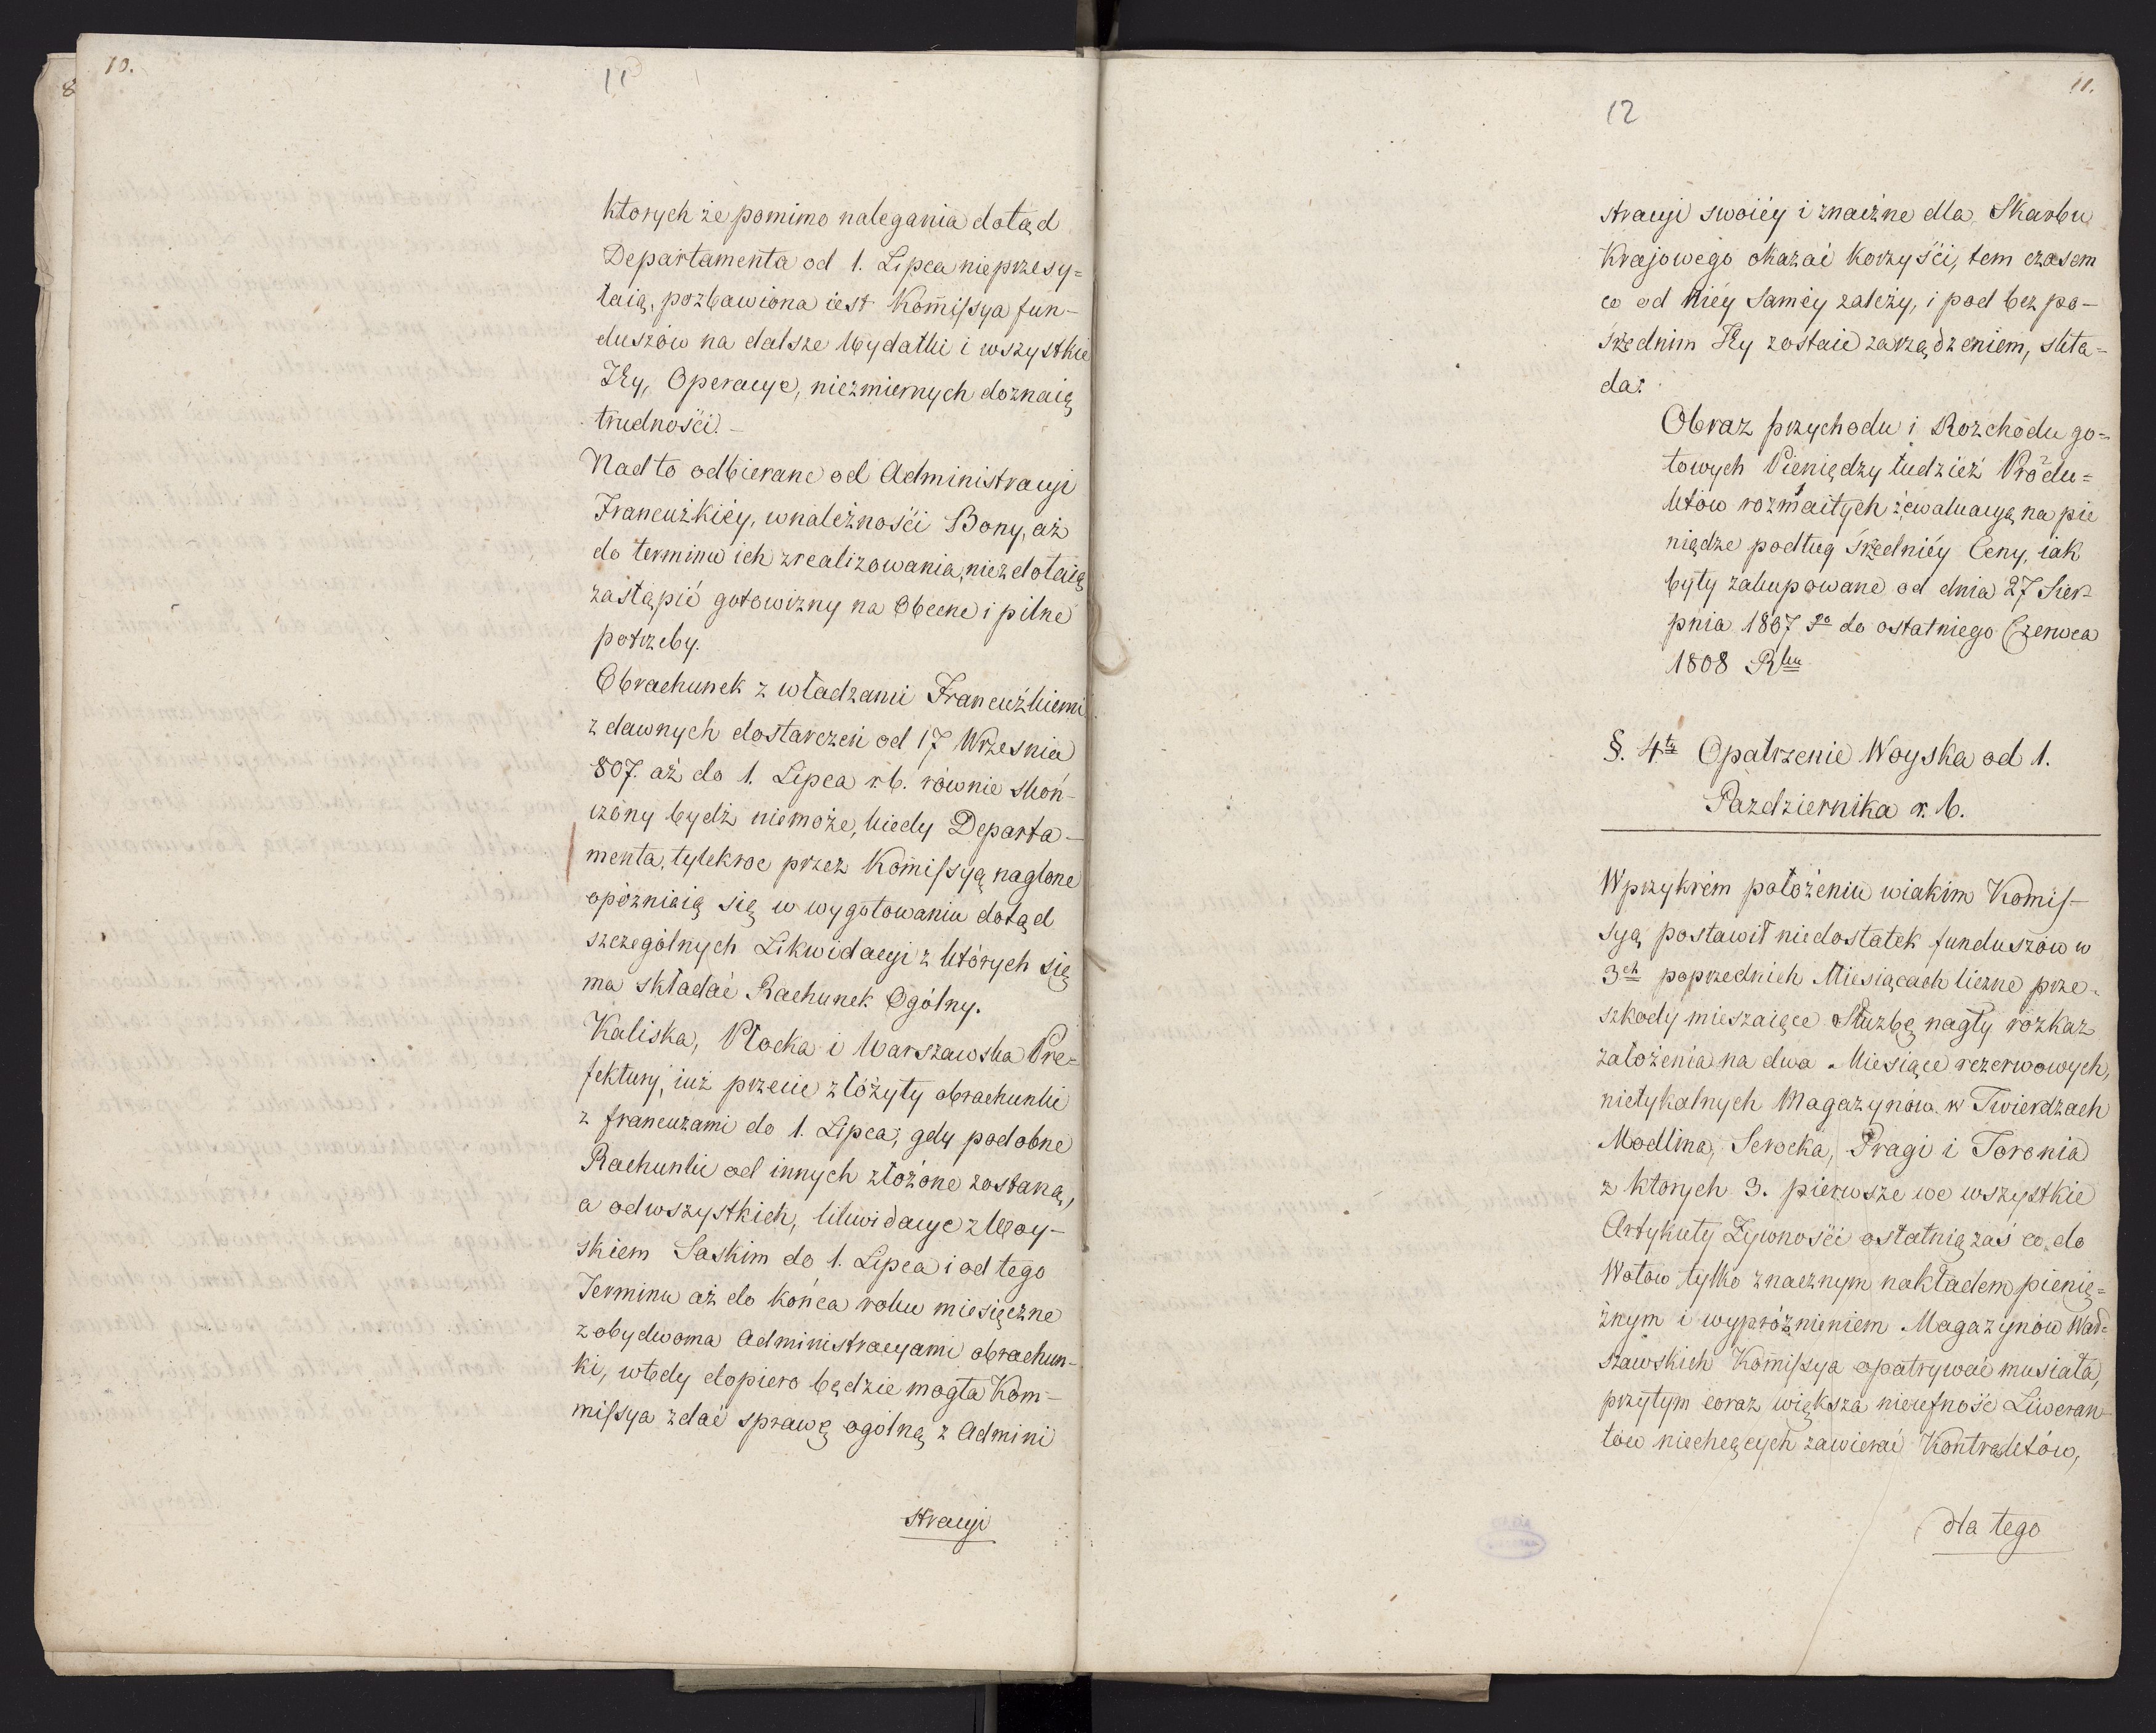 10.
8
11
ktorych że pomimo nalegania dotąd
Departamenta od 1. Lipca nieprzesy=
łaią, pozbawiona iest Kommissya fun-
duszów na dalsze Wydatki i wszystkie
Jey, Operacye, niezmiernych doznaią
trudności. -
Nadto odbierane od Administracyi
Francuzkiéy, wnależności Bony, aż
do terminu ich zrealizowania, niezdołaią
zastąpić gotowizny na Obecne i pilne
potrzeby.
Obrachunek z władzami Francuźkiemi
z dawnych dostarczeń od 17 Wrzesnia
807. aż do 1. Lipca r.b. równie skoń-
czony bydź niemoże, kiedy Departa-
menta, tylekroc przez Kommissyą naglone
opóźniaią się w wygotowaniu dotąd
szczególnych Likwidacyi z których się
ma składać Rachunek Ogólny.
Kaliska, Płocka i Warszawska Pre=
fektury, iuż przecie złóżyły obrachunki
z francuzami do 1. Lipca; gdy podobne
Rachunki od innych złożone zostaną,
a odwszystkich, likwidacye z Woy-
skiem Saskim do 1. Lipca i od tego
Terminu aż do końca roku miesięczne
z obydwoma Administracyami obrachun-
ki, wtedy dopiero będzie mogła Kom-
missya zdać sprawę ogólną z Admini
stracyi
11.
12
stracyi swoiéy i znaczne dla Skarbu
Krajowego okazać korzyści, tem czasem
co od Niéy saméy zależy, i pod bezpo-
średnim Jey zostaie zarządzeniem, skła=
da:
Obraz przychodu i Rozchodu go=
towych Pieniędzy tudzież Produ=
któw rozmaitych zewaluacyą na pie
niądze podług średniéy Ceny, iak
były zakupowane od dnia 27 Sier-
pnia 1807 go do ostatniego Czerwca
1808 Rku
§. 4ty Opatrzenie Woyska od 1.
Pazdziernika r. b.
W przykrém położeniu wiakim Komis-
syą postawił niedostatek funduszów w
3ch poprzednich Miesiącach liczne prze-
szkody mieszaiące Służbę nagły rozkaz
założenia na dwa Miesiące rezerwowych,
nietykalnych Magazynów w Twierdzach
Modlina, Serocka, Pragi i Toronia
z ktorych 3. pierwsze we wszystkie
Artykuły Żywności ostatnią zaś co do
Wołów tylko znacznym nakładem pienię=
żnym i wypróżnieniem Magazynów War=
szawskich Kommissya opatrywać musiała,
przytym coraz większa nieufność Liweran-
tów niechcących zawierać Kontraktów,
dla tego